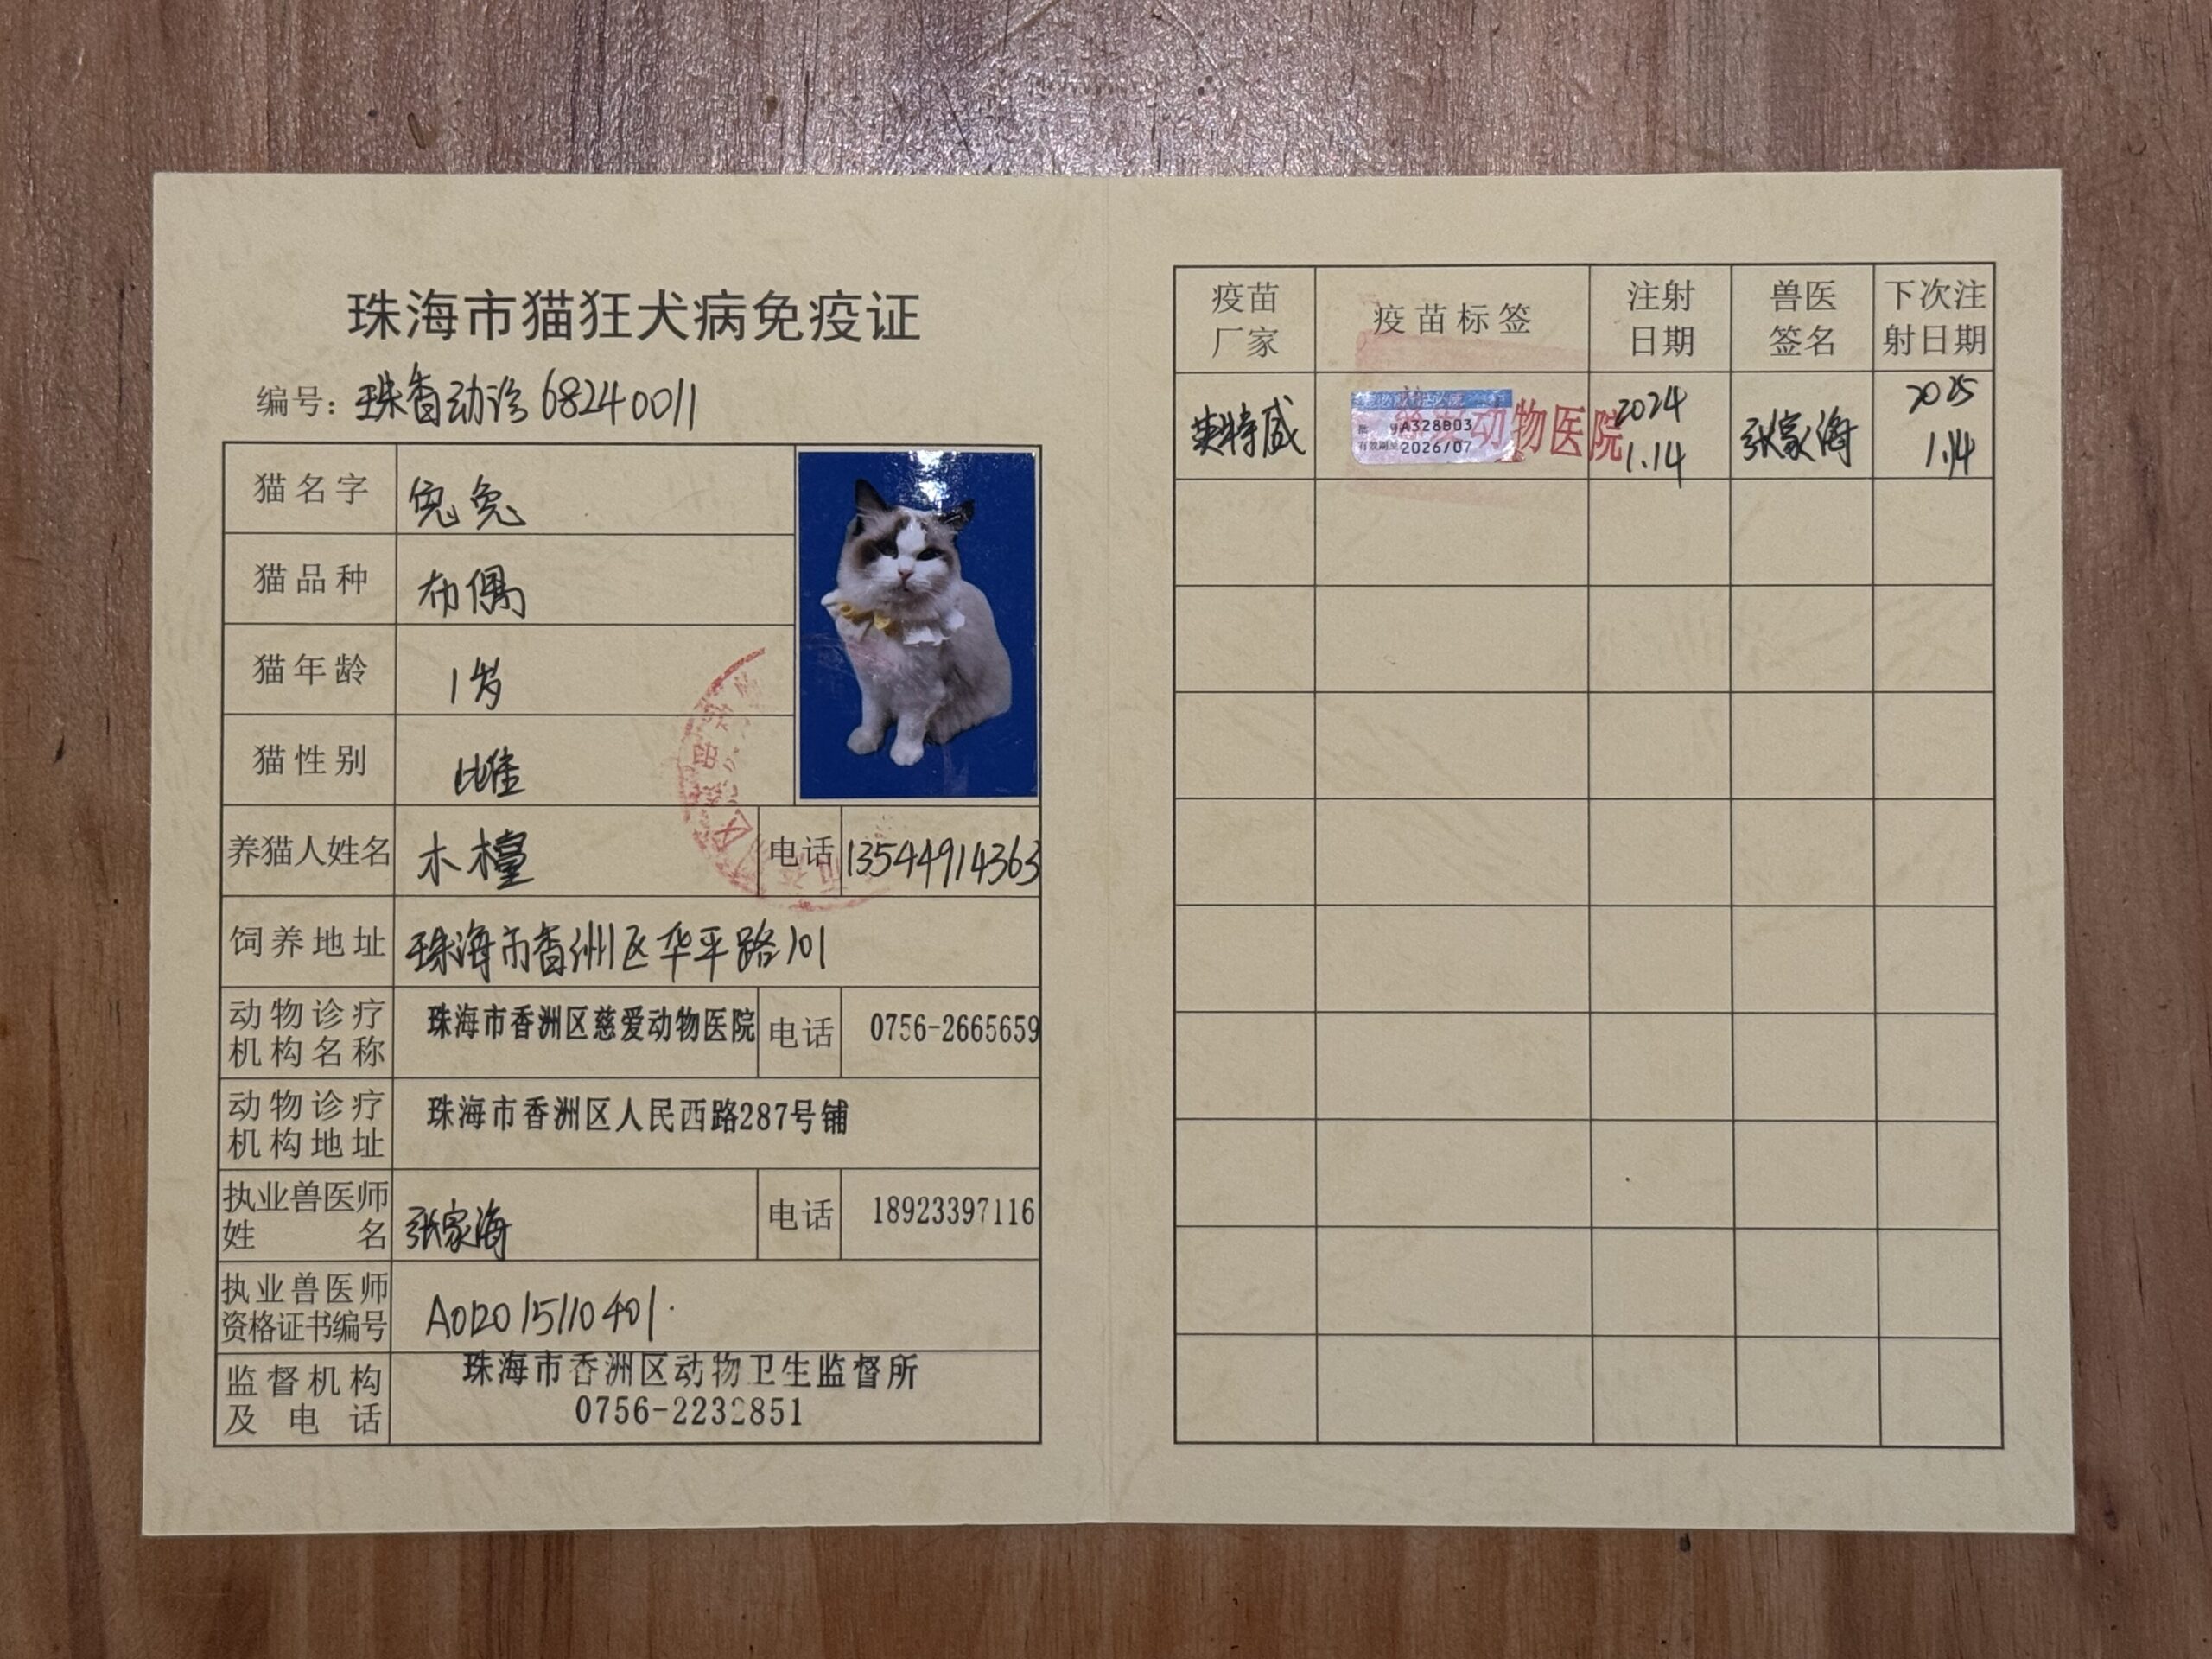 珠海市猫狂犬病免疫证
编号：珠香动诊68240011
猫名字 兔兔
猫品种 布偶
猫年龄 1岁
猫性别 雌
养猫人姓名 木橦 电话 13544914363
饲养地址 珠海市香洲区华平路101
动物诊疗
机构名称 珠海市香洲区慈爱动物医院 电话 0756-2665659
动物诊疗
机构地址 珠海市香洲区人民西路287号铺
执业兽医师
姓名 张家海 电话 18923397116
执业兽医师
资格证书编号 A012015110401
监督机构
及电话 珠海市香洲区动物卫生监督所
0756-2232851
疫苗
厂家
疫苗标签
注射
日期
兽医
签名
下次注
射日期
英特威
批号A328B03
有效期至2026/07
动物医院
2024
1.14
张家海
2025
1.14